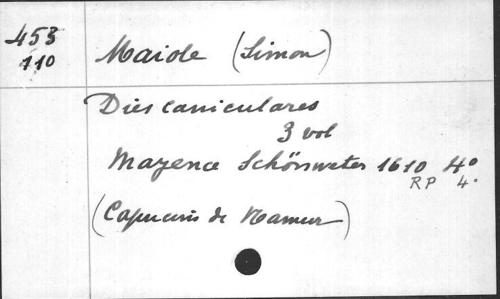 453
110
Maiole (Simon)
Dies caniculares
3 vol
Mayence Schönweter 1610 4°
RP 4.
(Capucins de Namur)